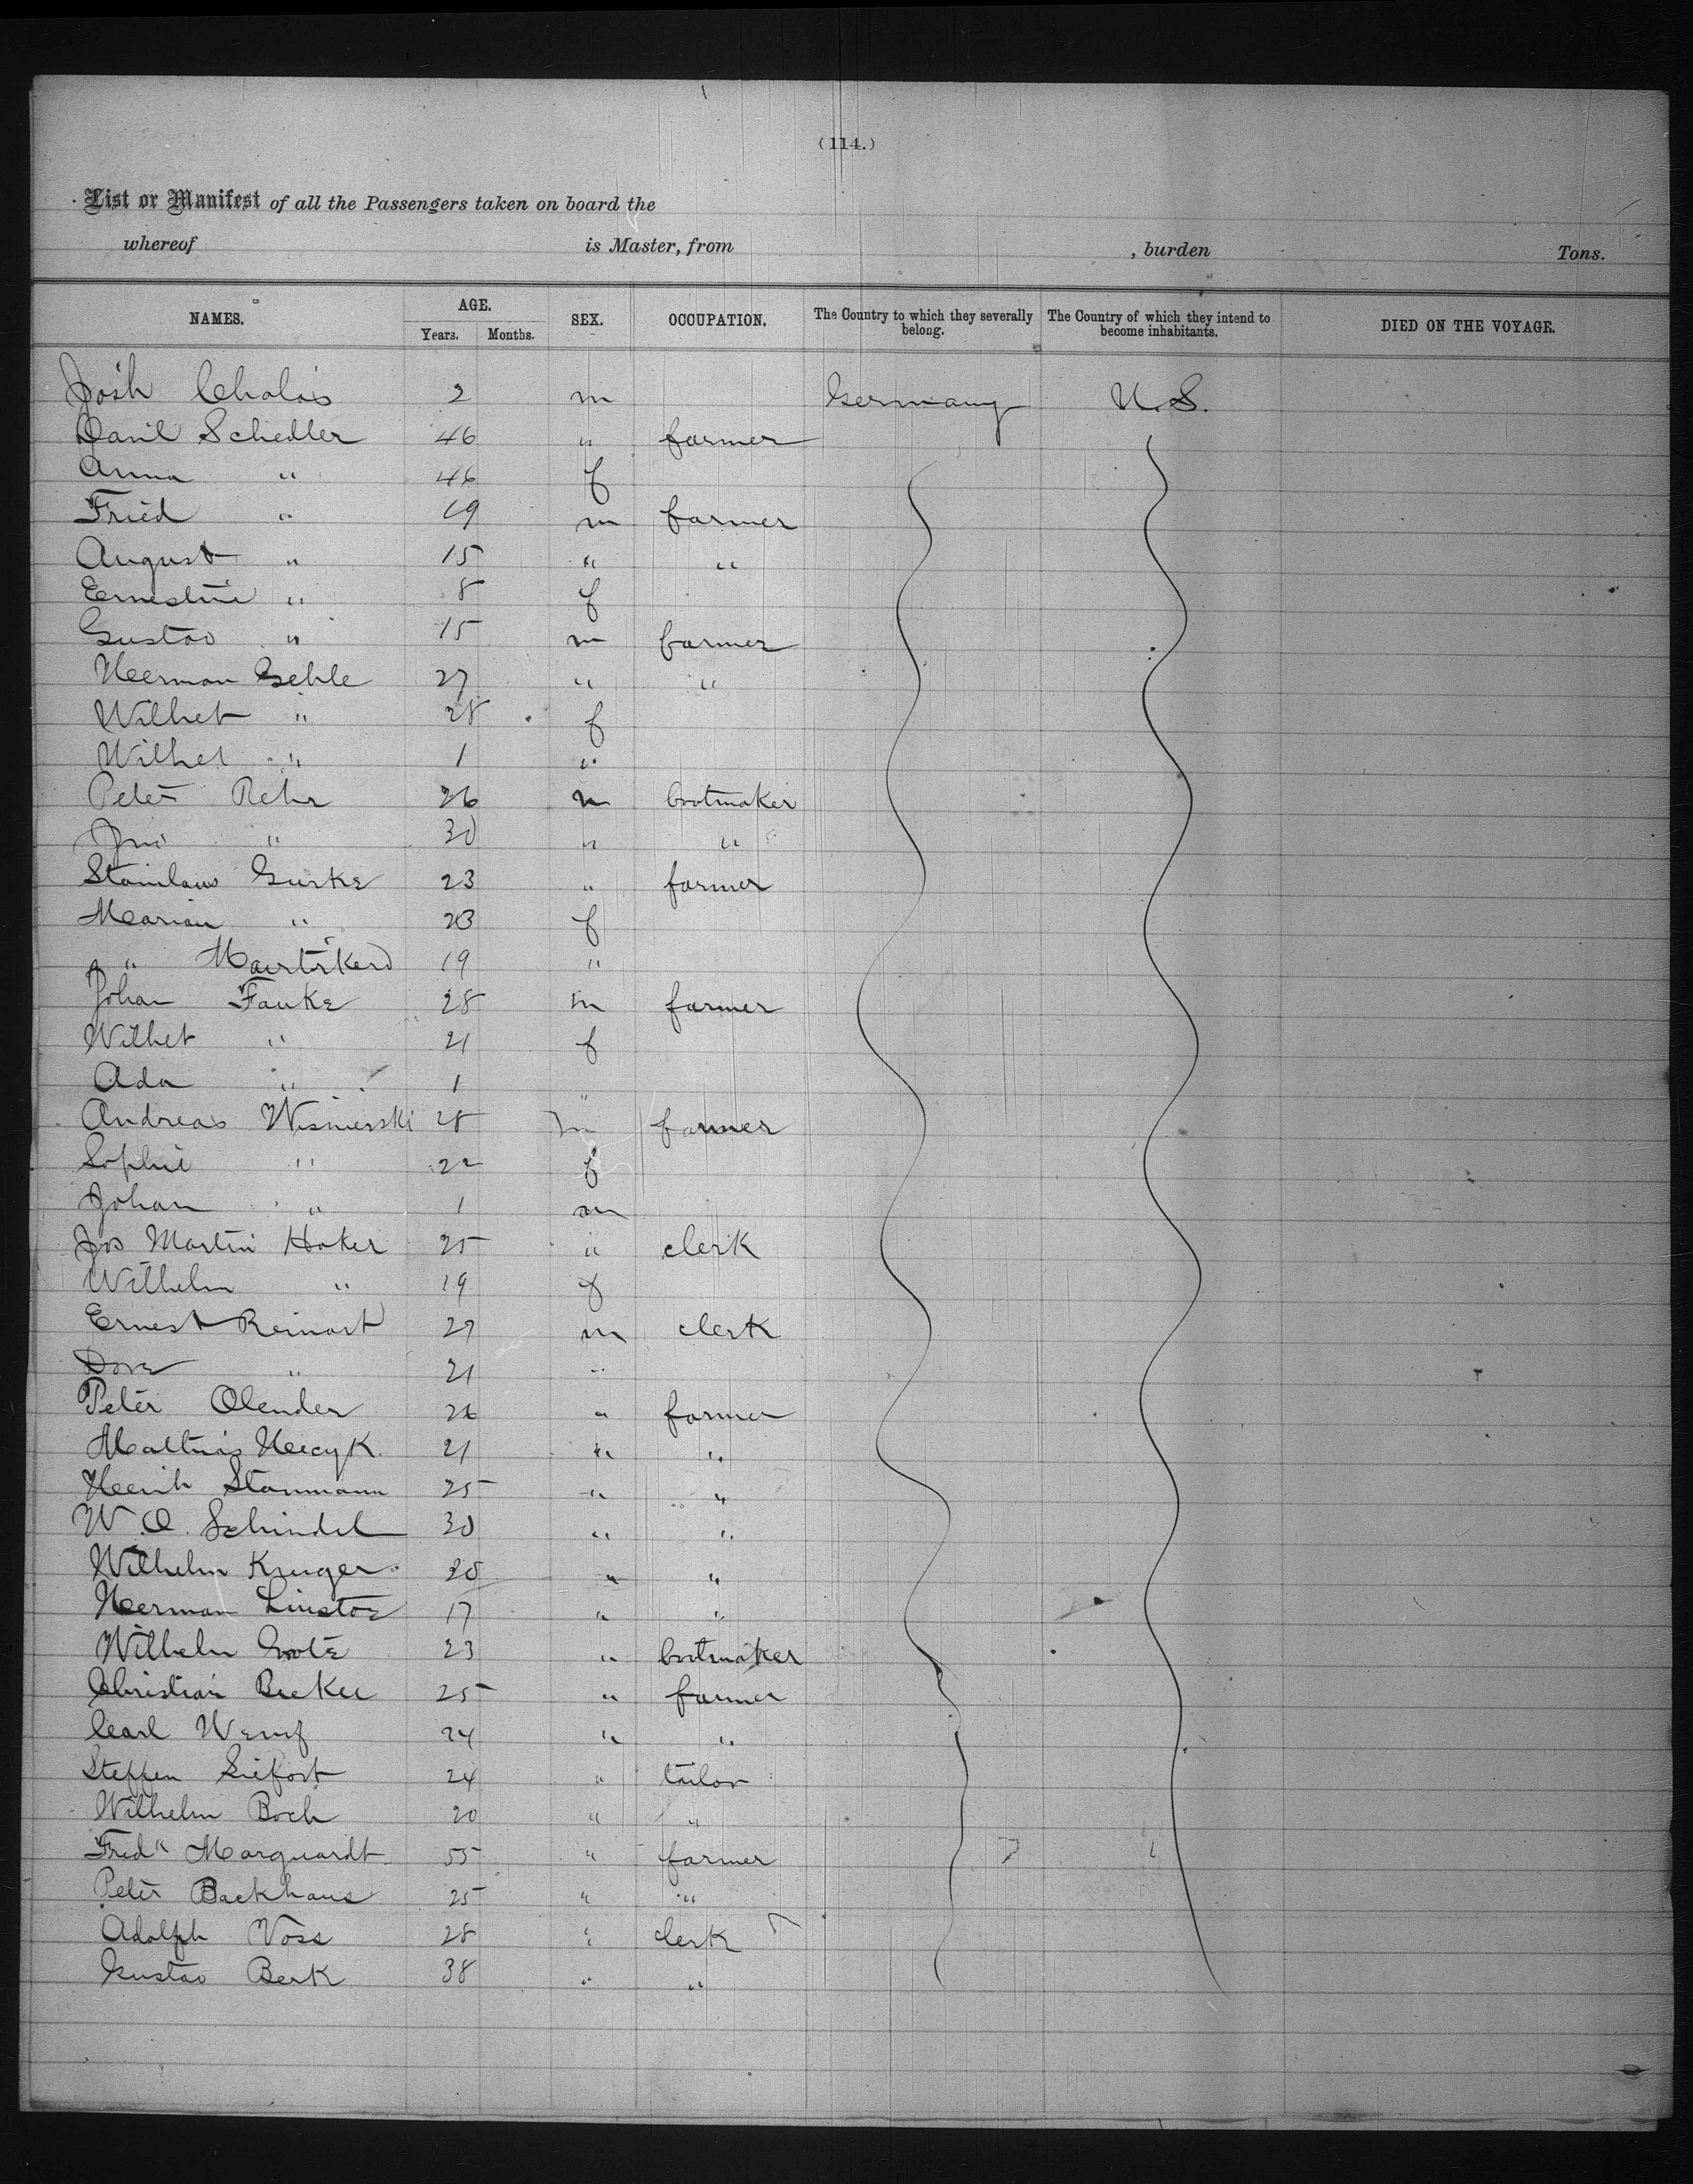 (114.)
List or Manifest of all the Passengers taken on board the
whereof is Master, from , burden Tons.
NAMES. AGE. SEX. OCCUPATION. The Country to which they severally belong. The Country of which they intend to become inhabitants. DIED ON THE VOYAGE.
Years. Months.
Josh Cholois 2 m Germany U.S.
Daril Schedler 46 " farmer
Anna " 46 f
Fried " 19 m farmer
August " 15 " "
Ernestine " 8 f
Gustav " 15 m farmer
Herman Gehle 27 " "
Wilhet " 28 f
Wilhet " 1 "
Peter Rehr 26 m bootmaker
" 30 " "
Stanilaus Gurke 23 " farmer
Marian " 23 f
" 19 "
Johan Fauke 28 m farmer
Wilhet " 21 f
Ada " 1 "
Andreas Wisnierski 28 m farmer
Sophie " 22 f
Johan " 1 m
Jos Martin Hoker 25 " clerk
Wilhelm " 19 f
Ernest Reinart 29 m clerk
Dora " 21 "
Peter Olender 26 " farmer
Mathias 21 " "
Henrih Stammann 25 " "
W. O. Schindel 30 " "
Wilhelm Kruger 20 " "
Herman Linstoe 17 " "
Wilhelm Grote 23 " bootmaker
Christian Becker 25 " farmer
Carl 24 " "
Steffen Siefort 24 " tailor
Wilhelm Boch 20 " "
Fredk Marquardt 55 " farmer
Peter Backhaus 25 " "
Adolph Voss 28 " clerk
Gustav Berk 38 " "